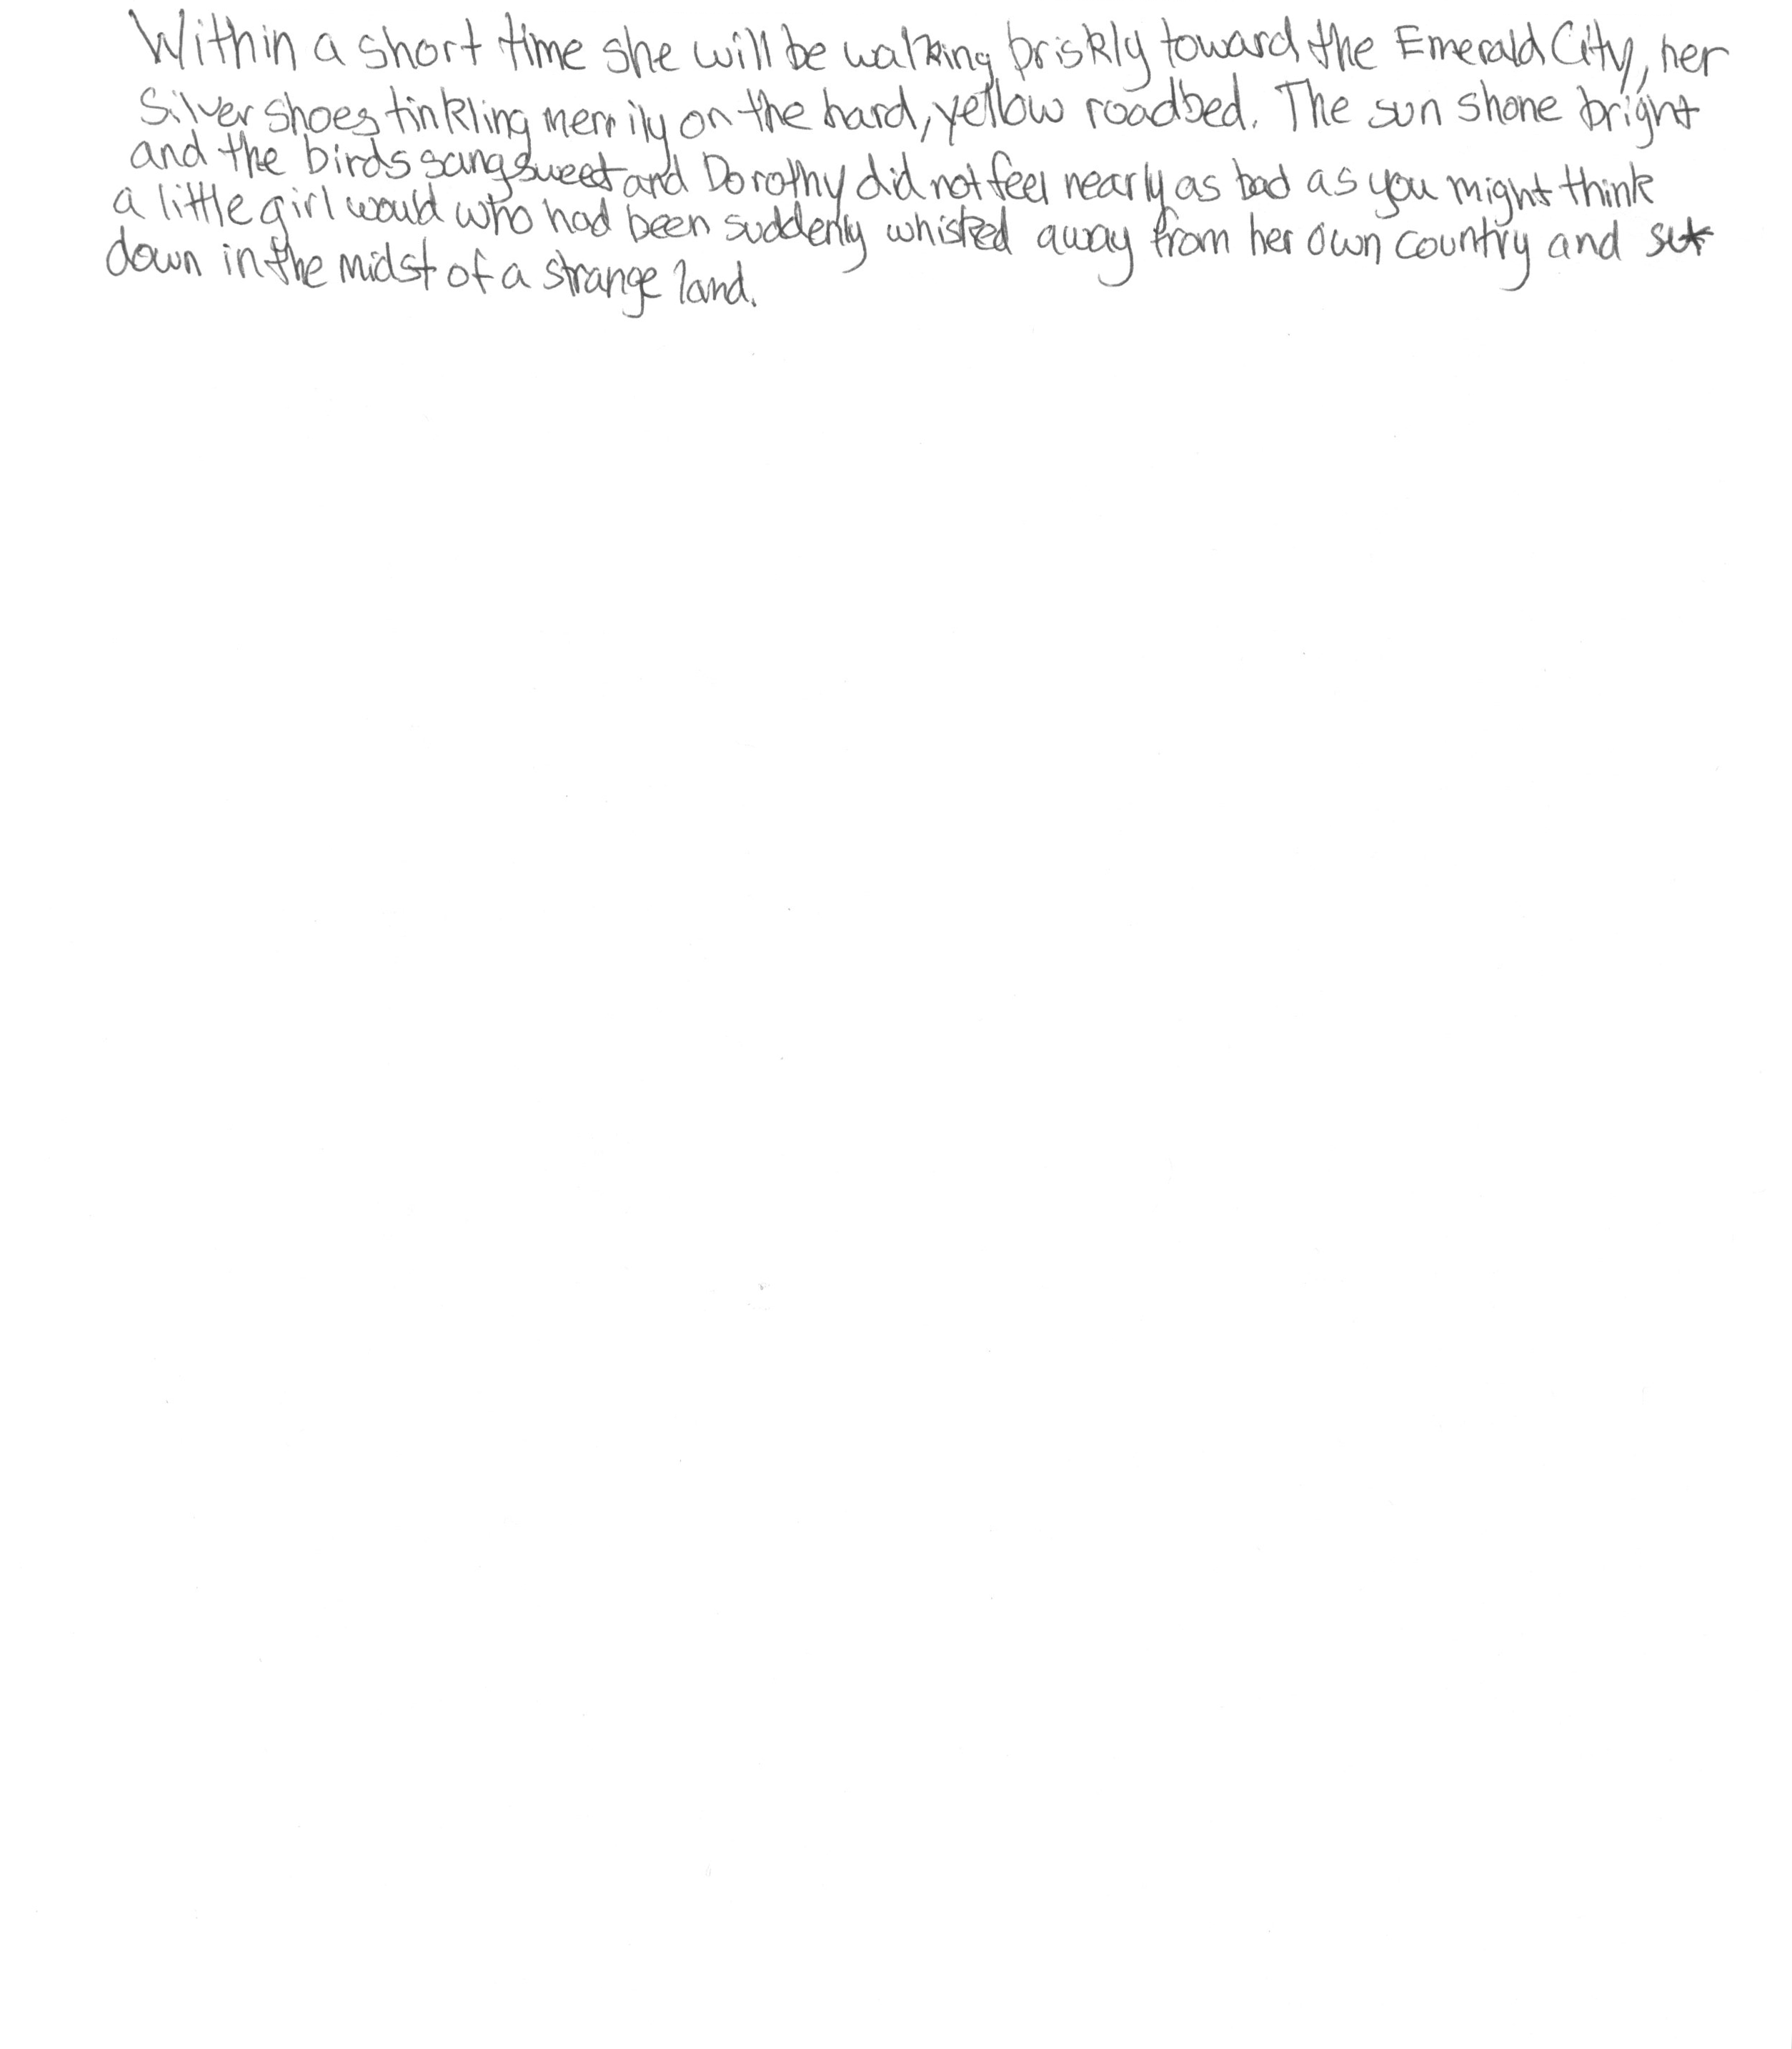 Within a short time she will be walking briskly toward the Emerald City, her
Silver shoes tinkling merrily on the hard, yellow roadbed. The sun shone bright
and the birds sang sweet and Dorothy did not feel nearly as bad as you might think
a little girl would who had been suddenly whisked away from her own country and set
down in the midst of a strange land.